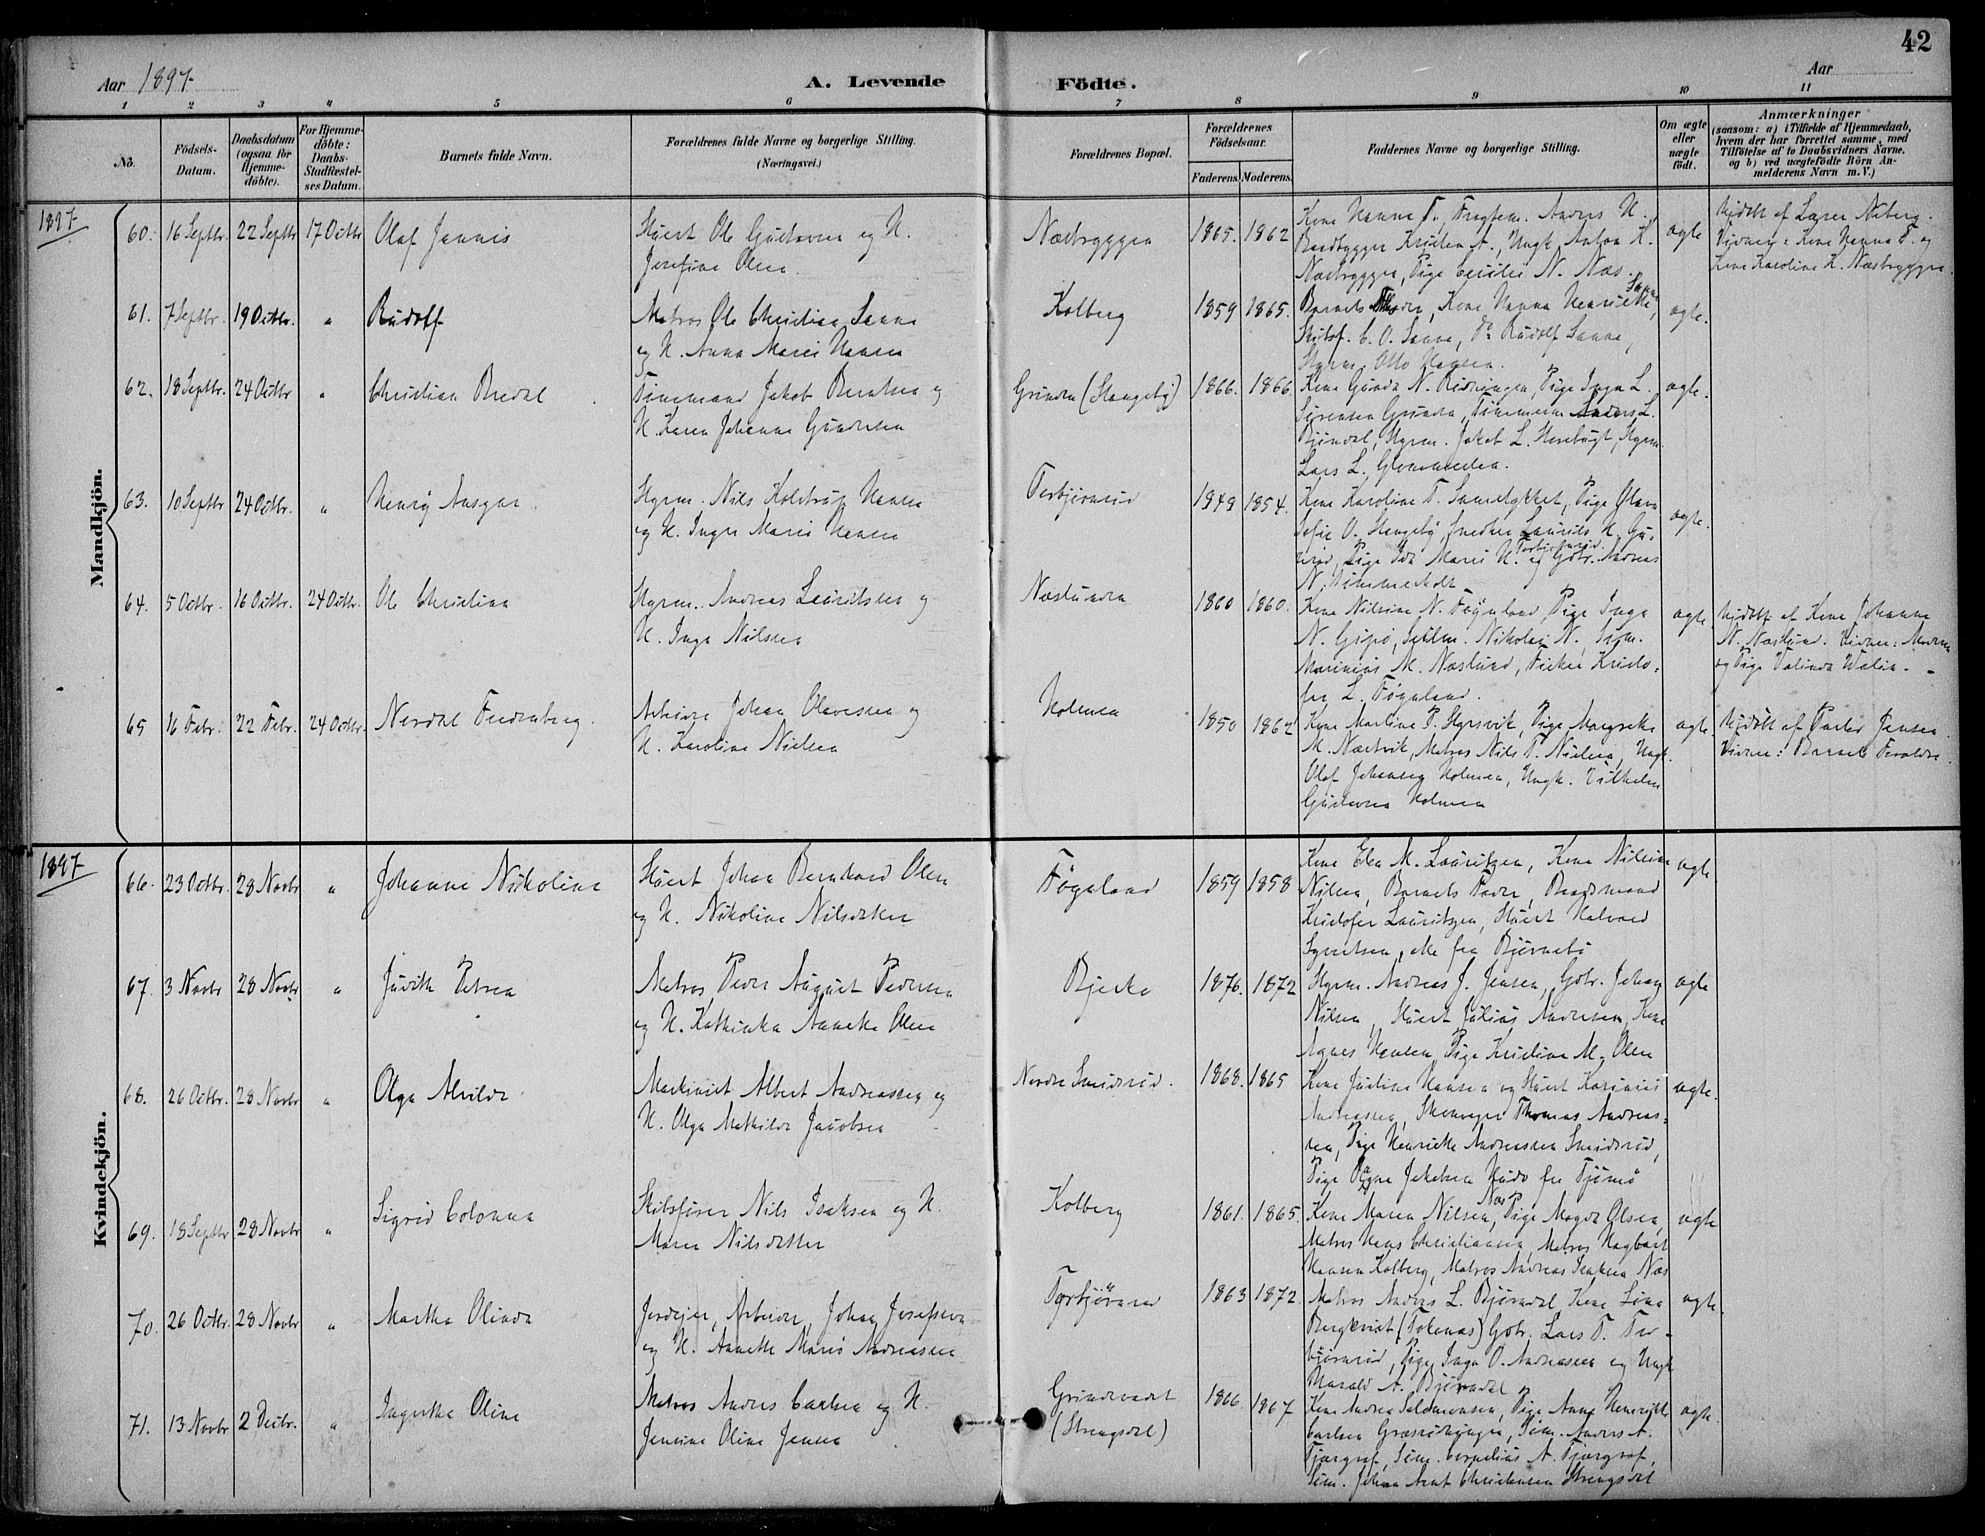 42
Aar 1897
A. Levende Födte.
Aar
1 2 3 4 5 6 7 8 9 10 11
No.
Födsels-Datum.
Daabsdatum (ogsaa for Hjemme-döbte).
For Hjemme-döbte: Daabs-Stadfæstel-ses Datum.
Barnets fulde Navn.
Forældrenes fulde Navne og borgerlige Stilling. (Næringsvei.)
Forældrenes Bopæl.
Forældrenes Födselsaar.
Faderens. Moderens.
Faddernes Navne og borgerlige Stilling.
Om ægte eller uægte födt.
Anmærkninger
(saasom: a) i Tilfælde af Hjemmedaab,
hvem der har forrettet samme, med
Tilföielse af to Daabsvidners Navne.
og b) ved uægtefödte Börn An-
melderens Navn m. V.)
Mandkjön.
1897
60. 16 Septbr. 22 Septbr 17 Octbr Olaf Jannis
Stuert Ole Gustavsen og H.
Josefine Olsen
Næsbryggen 1865. 1862
Kone Hanna T., Anders H.,
Kristen A., Ungk. Anton K.
Næsbryggen, Pige Cecilie N. Næs.
ægte
Hjdøbt af Lærer Neberg.
Vidner: Kone Hanna T. og
Kone Karoline K. Næsbryggen.
61. 7 Septbr. 19 Octbr. " Rudolf
Matros Ole Christian Sanne
og H. Anna Marie Hansen
Kolberg 1859 1865.
Barnets Fader, Kone Hanna Henriette Sanne,
Skibsf. C. O. Sanne, Do Rudolf Sanne,
Styrm. Otto Hansen.
ægte.
62. 18 Septbr. 24 Octbr " Christian Bredal
Tømmermand Jakob Berntsen og
H. Karen Johanne Gundersen
Grinda (Stangeby) 1866. 1866
Kone Gunda N. Rødningen, Pige Inga L.
Sørensen Grinda, Tømmerm. Anders L.
Bjøndal, Styrm. Jakob L. Styrm.
Lars L.
ægte.
63. 10 Septbr 24 Octbr. " Henry Ansgar.
Styrm. Nils Kolstrup Hansen
og H. Inger Marie Hansen
Torbjørnrød 1849 1854.
Kone Karoline T. Pige Olava
Sofie O. Stangeby, Snedker Laurits H.
Pige Ida Marie H. og Gbr. Andreas
N.
ægte.
64. 5 Octbr. 16 Octbr. 24 Octbr. Ole Christian
Styrm. Andreas Lauritsen og
H. Inga Nilsen
Næslunda 1860 1860.
Kone Nilsine N. Føynland, Pige Inga
N. Gipø, Nikolai N.,
Marinius M. Næslund, Fisker Kristo-
fer L. Føynland.
ægte
Hjdøbt af Kone Johanne
N. Næslund. Vidner:
og Pige Valinda Walin.
65 16 Febr. 22 Febr. 24 Octbr. Nerdal Fredenberg.
Arbeider Johan Olavesen og
H. Karoline Nielsen
Holmen 1850 1862
Kone Martine P. Pige Margrethe
M. Næsvik, Matros Nils T. Nielsen, Ungk.
Olaf Johansen Holmen, Ungk. Vilhelm
Gustavsen Holmen
ægte.
Hjdøbt af Jensen.
Vidner: Barnets Forældre.
Kvindekjön.
1897
66. 23 Octbr. 28 Novbr " Johanne Nikoline
Stuert Johan Bernhard Olsen
og H. Nikoline Nilsdatter
Føynland 1859 1858
Kone Elen M. Lauritzen, Kone Nilsine
Nilsen, Barnets Fader, Baadsmand
Kristofer Lauritzen, Stuert Halvard
Syvertsen, alle fra Bjørnebo
ægte.
67. 3 Novbr 28 Novbr " Judith Petrea
Matros Peder August Pedersen
og H. Kathinka Annette Olsen
Bjerke 1876. 1872
Styrm. Andreas J. Jensen, Gbr. Johan
Nilsen, Stuert Julius Andersen, Kone
Agnes Hansen, Pige Kristine M. Olsen
ægte
68. 26 Octbr. 28 Novbr " Olga Alvilde
Maskinist Albert Andreassen og
H. Olga Mathilde Jacobsen
Nordre Smidsrød. 1868. 1865
Kone Juline Hansen og Stuert Karinius
Andreassen, Thomas Andreas-
sen, Pige Henriette Andreassen Smidsrød,
Pige Jakobsen fra Tjømø
ægte.
69. 18 Septbr 28 Novbr " Sigrid Colonna
Skibsfører Nils Isaksen og H.
Maren Nilsdatter
Kolberg 1861. 1865.
Kone Maren Nilsen Næs, Pige Magda Olsen,
Matros Hans Christiansen, Matros Hagbart
Hansen Kolberg, Matros Andreas Isaksen Næs
ægte
70. 26 Octbr. 28 Novbr. " Martha Olinda
Jordeier, Arbeider, Johan Josefsen
og H. Annette Marie Andreassen
Torbjørnrød 1863 1872.
Matros Anders L. Bjøndal, Kone Lina
Bergkvist (Tokenæs) Gbr. Lars T. Tor-
bjørnrød, Pige Inga O. Andreassen og Ungk.
Harald A. Bjøndal
ægte.
71. 13 Novbr 2 Decbr. " Ingertha Oline
Matros Anders Carlsen og H.
Jensine Oline Jensen
Grindevadet
(Strengsdal) 1866. 1867
Kone Andrea Salomonsen, Pige Anne Henriette
Carlsen Anders A.
Tjærgraf, Cornelius A. Tjærgraf,
Johan Arnt Christensen Strengsdal
ægte.